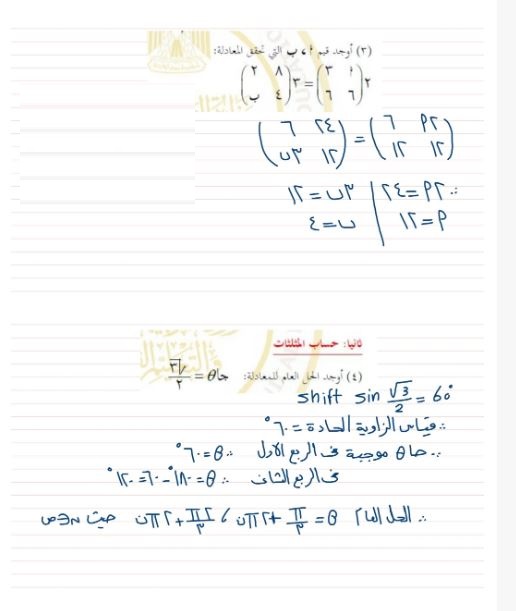 (٣) أوجد قيم أ ، ب التي تحقق المعادلة:
٢ (أ ٣ / ٦ ٦) = ٣ (٨ ٢ / ٤ ب)
(٢أ ٦ / ١٢ ١٢) = (٢٤ ٦ / ١٢ ٣ب)
∴ ٢أ = ٢٤ | ٣ب = ١٢
أ = ١٢ | ب = ٤
ثانيا: حساب المثلثات
(٤) أوجد الحل العام للمعادلة: جا θ = √٣/٢
shift sin √3/2 = 60°
∴ قياس الزاوية الحادة = ٦٠°
∴ جا θ موجبة فى الربع الاول ∴ θ = ٦٠°
فى الربع الثانى ∴ θ = ١٨٠° - ٦٠° = ١٢٠°
∴ الحل العام θ = π/٣ + ٢πن ، ٢π/٣ + ٢πن حيث ن ∈ ص